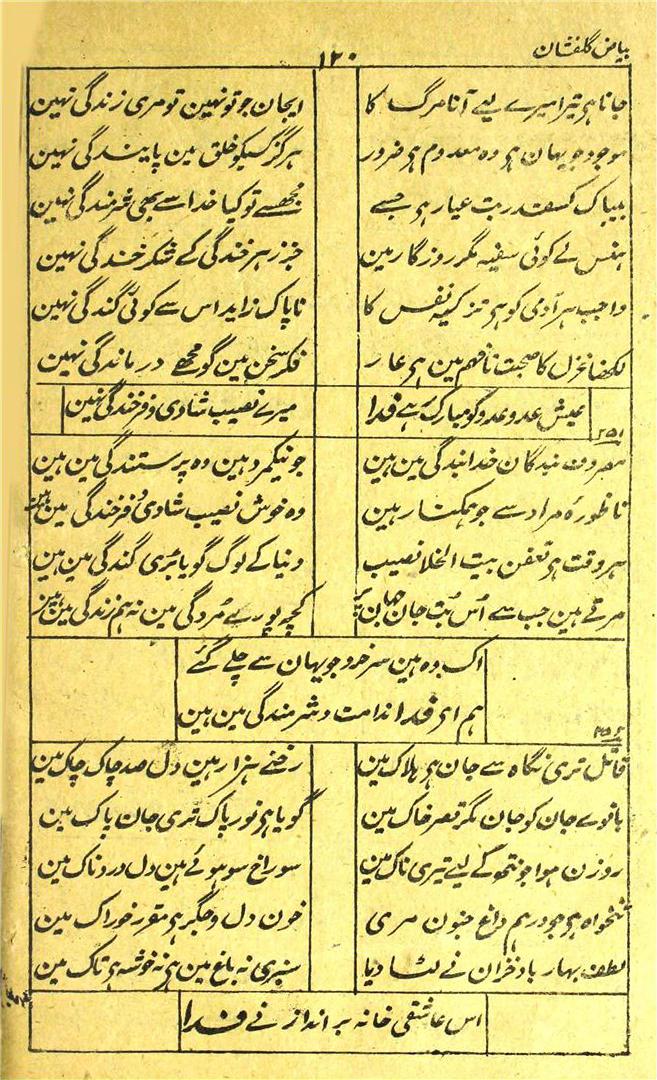 بیاض گلفشان
۱۲۰
جانا ہی تیرا میرے لیے آنا مرگ کا ایجان جو تو نہین تو مری زندگی نہین
موجود جو یہان ہی وہ معدوم ہی ضرور ہرگز کسیکو خلق مین پایندگی نہین
بیباک کسقدر بت عیار ہی جسے مجھسے تو کیا خدا سے بھی شرمندگی نہین
ہنس لے کوئی سفیہ مگر روزگار مین جز زہر خندگی کے شکر خندگی نہین
واجب ہر آدمی کو ہی تزکیہ نفس کا ناپاک زاید اس سے کوئی گندگی نہین
لکھنا غزل کا صحبت نافہم مین ہی عار فکر سخن مین گو مجھے درماندگی نہین
عیش عدو عدو کو مبارک رہے فدا میرے نصیب شادی و فرخندگی نہین
۲۵۱
مصروف بندگان خدا بندگی مین ہین جو نیکمرد ہین وہ پرستندگی مین ہین
ناظورۂ مراد سے جو ہمکنار ہین وہ خوش نصیب شادی و فرخندگی مین ہین
ہر وقت ہی تعفن بیت الخلا نصیب دنیا کے لوگ گویا بڑی گندگی مین ہین
مرتے ہین جب سے اُس بت جان جہان پر کچھ پورے مُردگی مین نہ ہم زندگی مین ہین
اک وہ ہین سرخرو جو یہان سے چلے گئے
ہم ای فدا ندامت و شرمندگی مین ہین
۲۵۲
قاتل تری نگاہ سے جان ہی ہلاک مین رخنے ہزار ہین دل صد چاک چاک مین
بانوے جان کو جان مگر قصر خاک مین گویا ہی نور پاک تری جان پاک مین
روزن ہوا جو نتھ کے لیے تیری ناک مین سوراخ سو ہوئے ہین دل دردناک مین
تنخواہ ہی جو درہم داغ جنون مری خون دل و جگر ہی مقرر خوراک مین
لطف بہار باد خزان نے لٹا دیا سبزی نہ باغ مین ہی نہ خوشہ ہی تاک مین
اس عاشقی خانہ بر انداز نے فدا